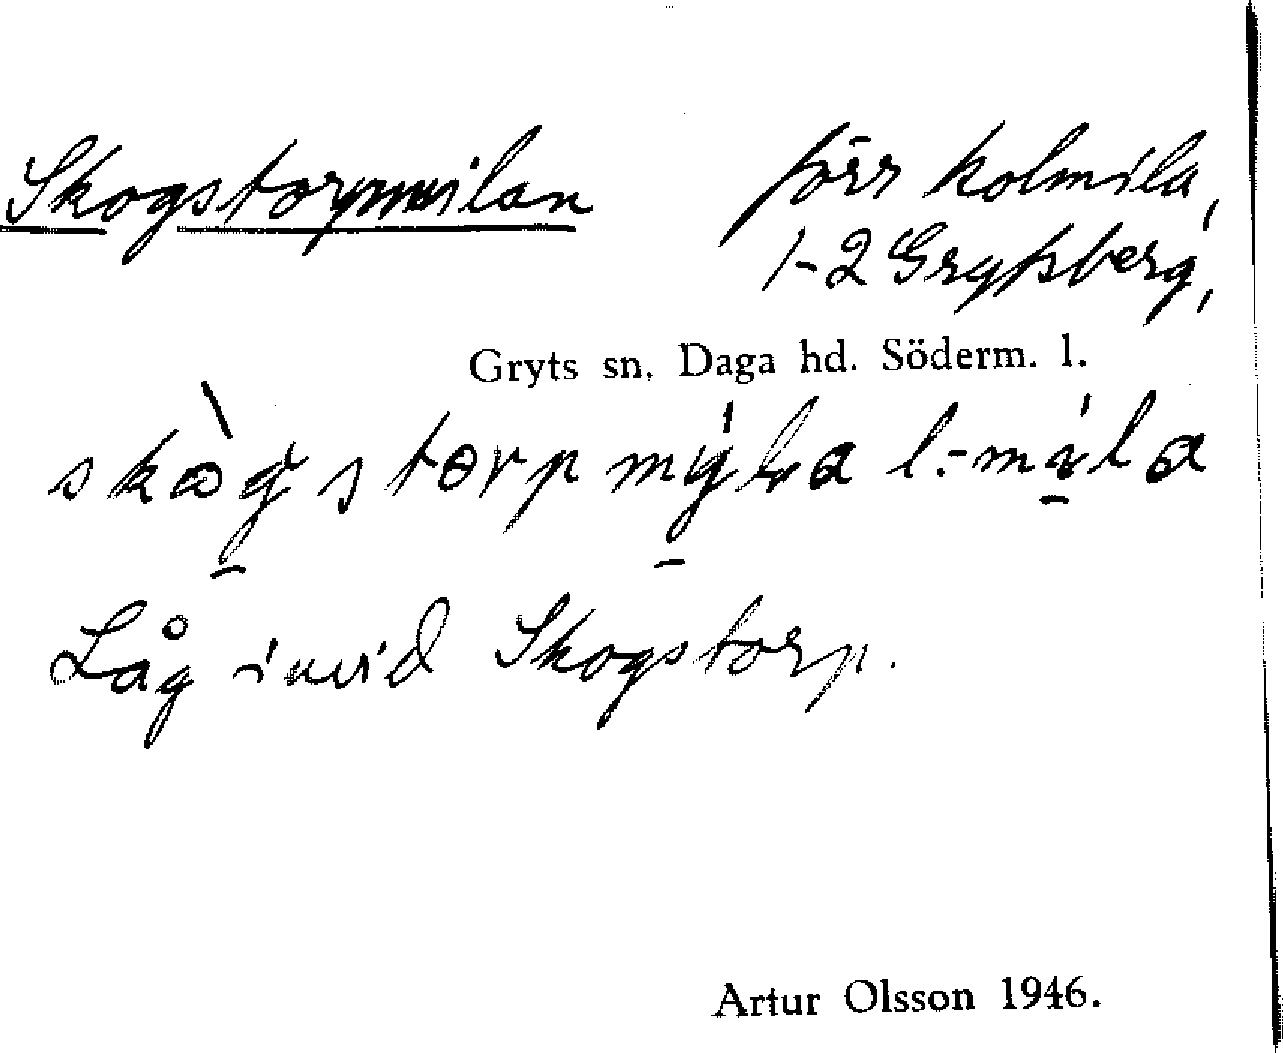 Skogstorpmilan förr kolmila,
1-2 Grytsberg,
Gryts sn. Daga hd. Söderm. l.
skògstorpmýla l. -míla
Låg invid Skogstorp.
Artur Olsson 1946.